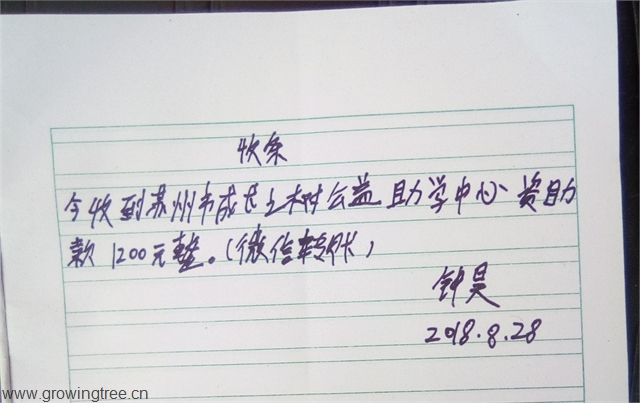 收条
今收到苏州市成长树公益助学中心资助
款1200元整。(微信转账)
钟昊
2018.8.28
www.growingtree.cn